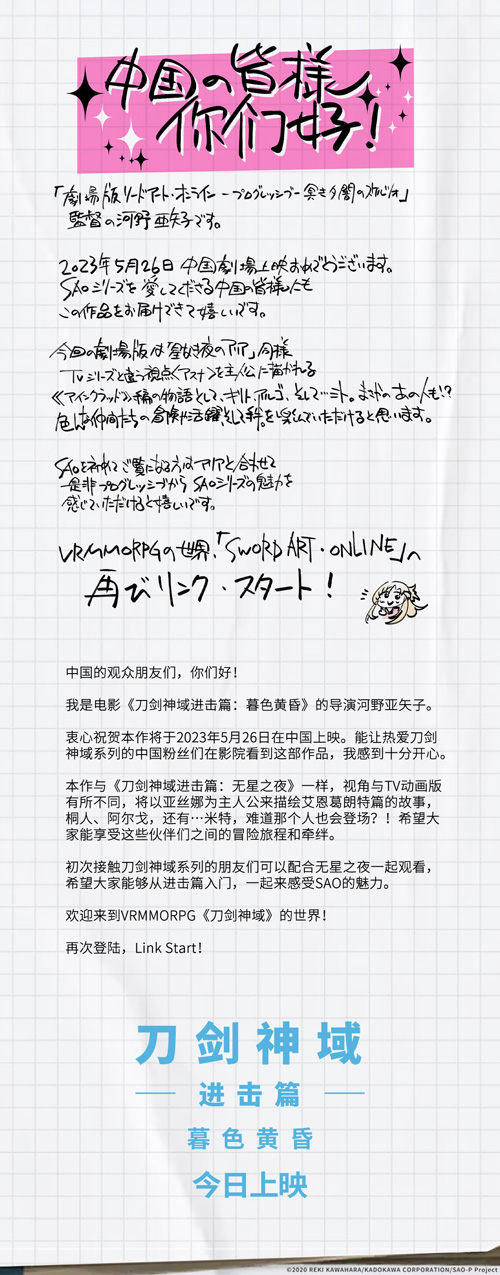 中国の皆様
你们好!
「劇場版ソードアート・オンライン -プログレッシブ- 冥き夕闇のスケルツォ」
監督の河野亜矢子です。
2023年5月26日 中国劇場上映おめでとうございます。
SAOシリーズを愛してくださる中国の皆様にも
この作品をお届けできて嬉しいです。
今回の劇場版は「星なき夜のアリア」同様
TVシリーズと違う視点〈アスナ〉を主人公に描かれる
《アインクラッド》編の物語として、キリト、アルゴ、そして…ミト。まさかのあの人も!?
色んな仲間たちの冒険や活躍、そして絆を楽しんでいただけると思います。
SAOを初めてご覧になる方はアリアと合わせて
是非プログレッシブからSAOシリーズの魅力を
感じていただけると嬉しいです。
VRMMORPGの世界、「SWORD ART・ONLINE」へ
再びリンク・スタート!
中国的观众朋友们，你们好！
我是电影《刀剑神域进击篇：暮色黄昏》的导演河野亚矢子。
衷心祝贺本作将于2023年5月26日在中国上映。能让热爱刀剑
神域系列的中国粉丝们在影院看到这部作品，我感到十分开心。
本作与《刀剑神域进击篇：无星之夜》一样，视角与TV动画版
有所不同，将以亚丝娜为主人公来描绘艾恩葛朗特篇的故事，
桐人、阿尔戈，还有…米特，难道那个人也会登场？！希望大
家能享受这些伙伴们之间的冒险旅程和牵绊。
初次接触刀剑神域系列的朋友们可以配合无星之夜一起观看，
希望大家能够从进击篇入门，一起来感受SAO的魅力。
欢迎来到VRMMORPG《刀剑神域》的世界！
再次登陆，Link Start！
刀剑神域
进击篇
暮色黄昏
今日上映
©2020 REKI KAWAHARA/KADOKAWA CORPORATION/SAO-P Project